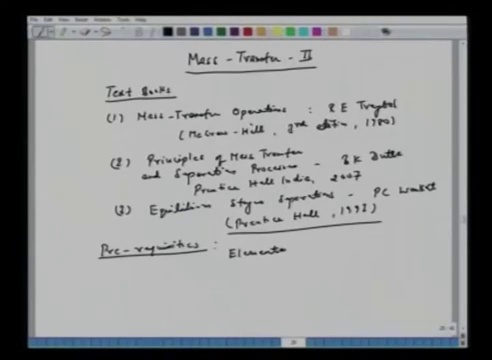 Mass - Transfer - II
Text Books
(1) Mass-Transfer Operations : R E Treybal
(McGraw-Hill, 3rd edition, 1980)
(2) Principles of Mass Transfer
and Separation Processes - B K Dutta
Prentice Hall India, 2007
(3) Equilibrium Stages Separations - PC Wankat
(Prentice Hall, 1993)
Pre-requisites : Elementa